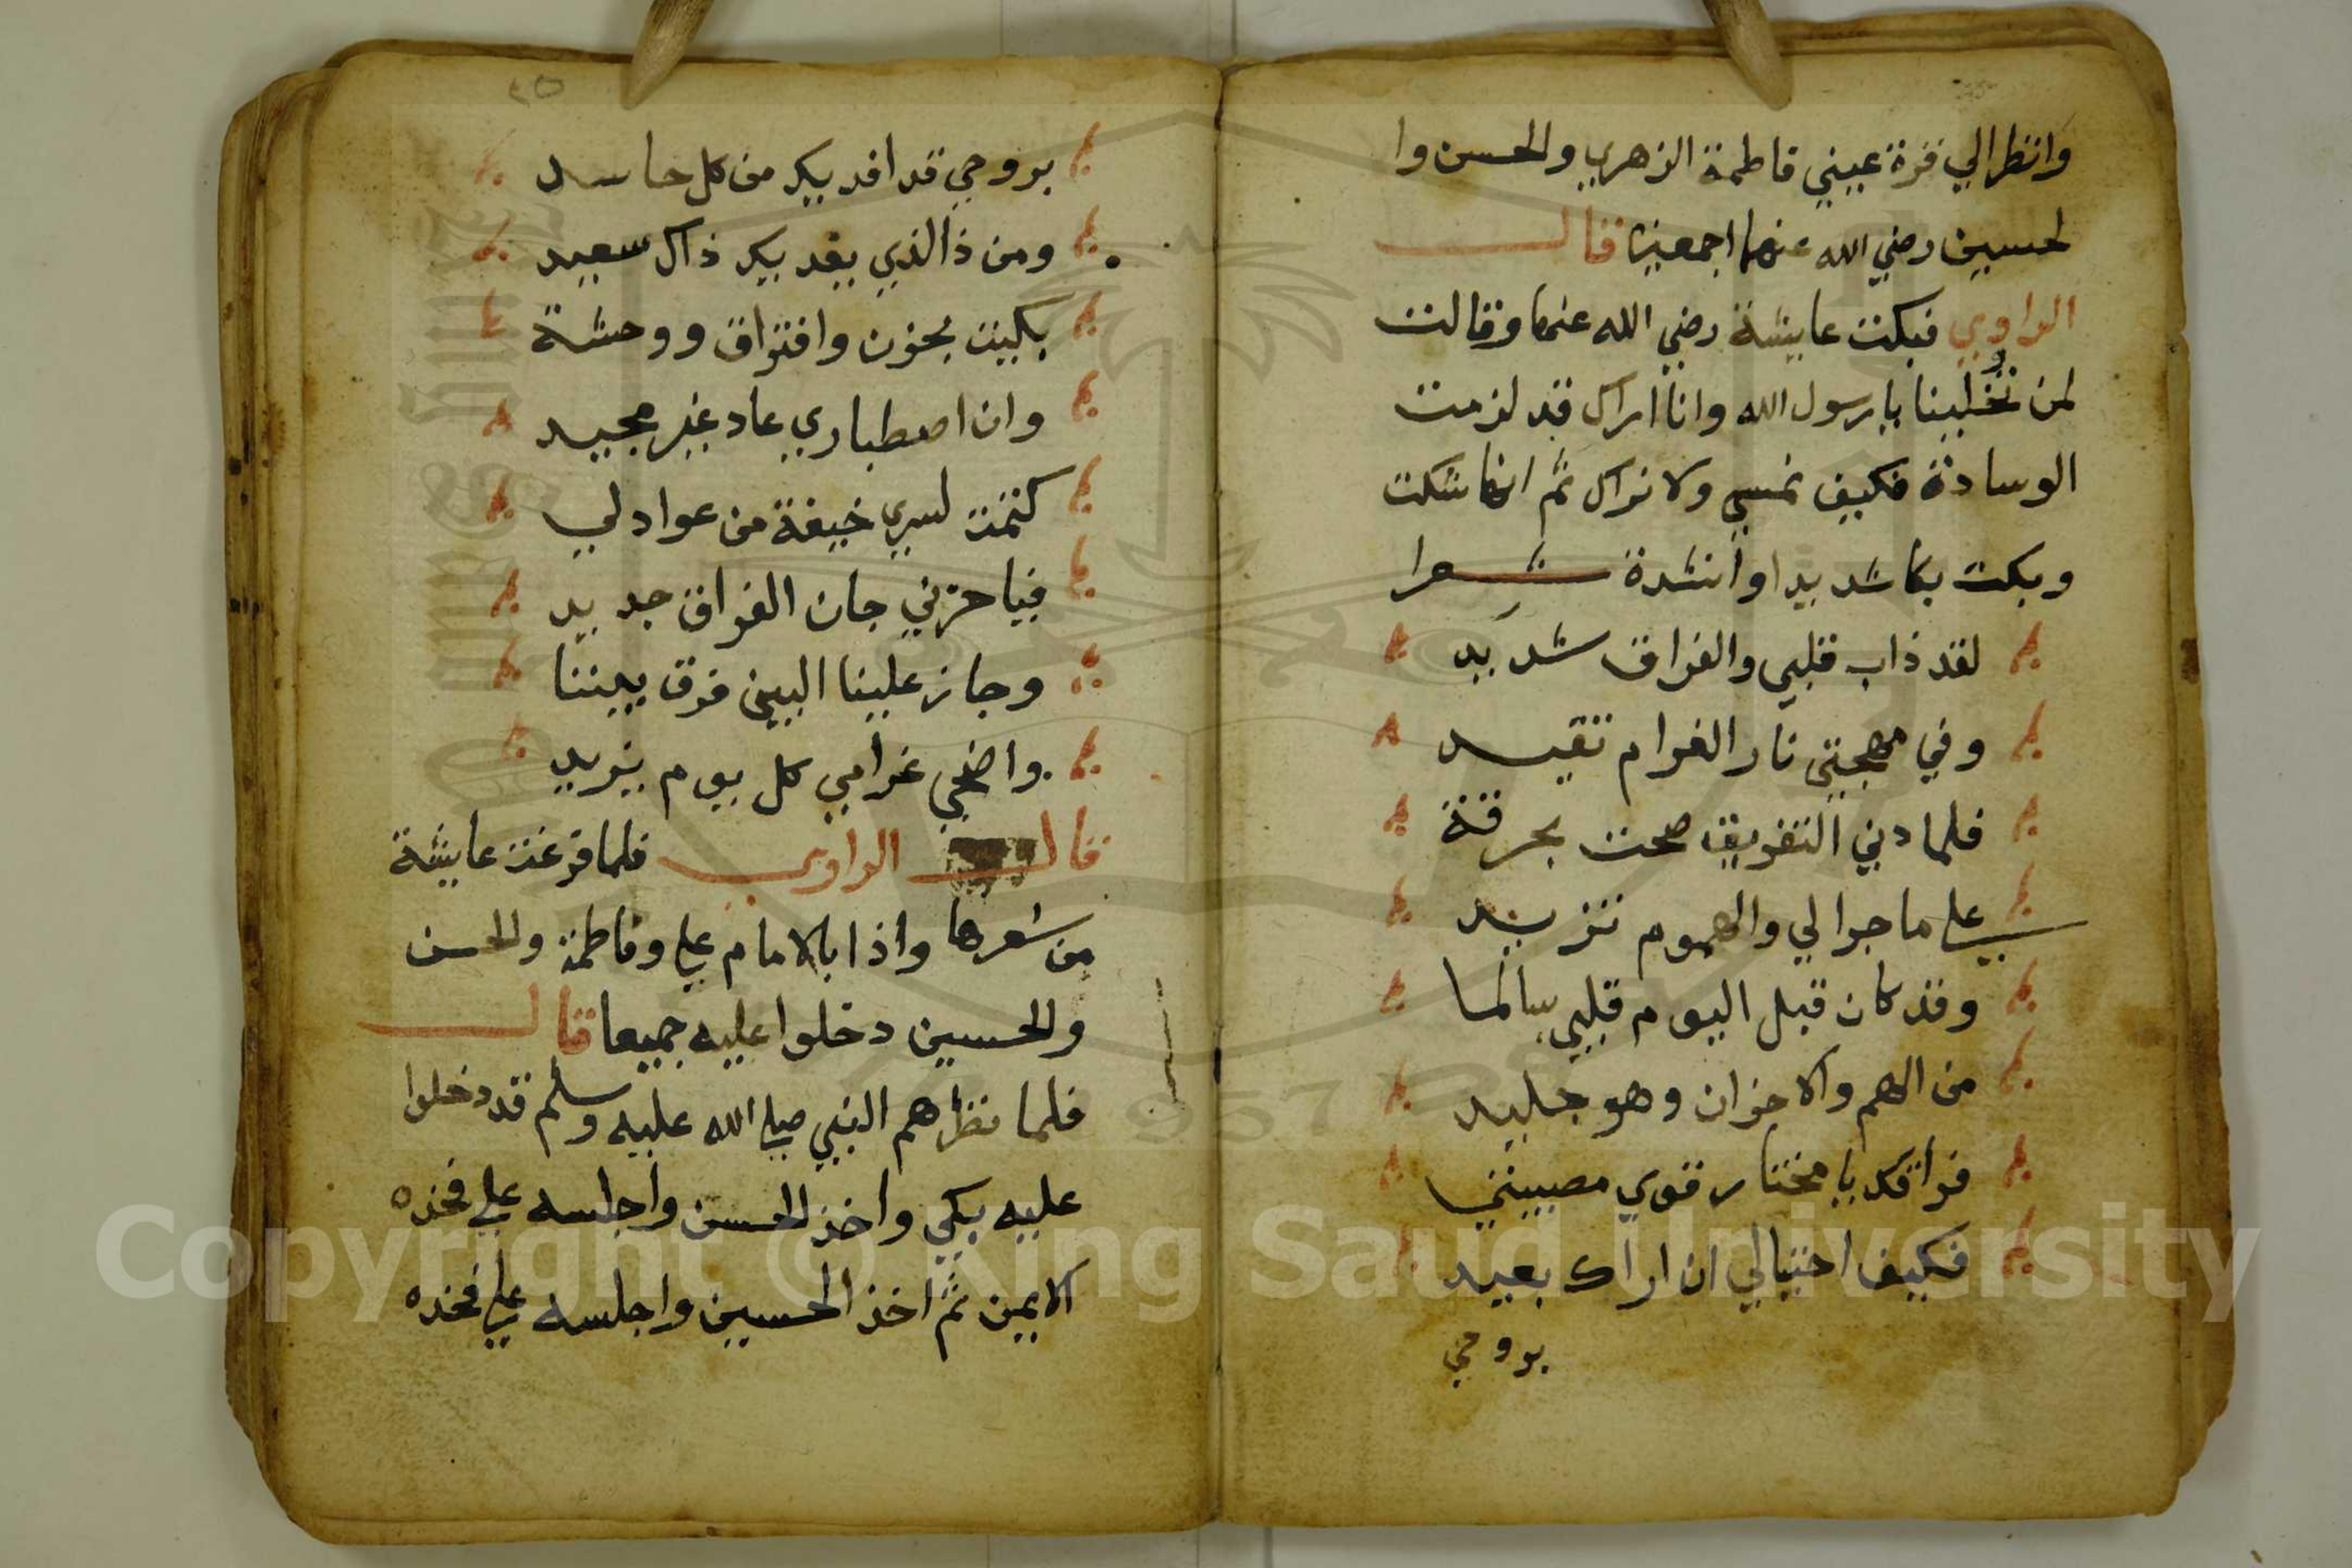 وانظر الي قرة عيني فاطمة الزهري والحسن وا
لحسين رضي الله عنهما اجمعين قال
الراوي فبكت عايشة رضي الله عنها وقالت
لمن تخلينا يا رسول الله وانا اراك قد لزمت
الوسادة فكيف نمسي ولا نراك ثم انها شكت
وبكت بكا شديدا وانشدة شعرا
لقد ذاب قلبي والفراق شديد
وفي مهجتي نار الغرام تقيد
فلما دني التفريق صحت بحرقة
علي ما جرا لي والهموم تزيد
وقد كان قبل اليوم قلبي سالما
من الهم والاحزان وهو جليد
فراقك يا مختار قوي مصيبتي
فكيف احتيالي ان اراك بعيد
بروحي
٢٥
بروحي قد افديك من كل حاسد
ومن ذا الذي يفديك ذاك سعيد
بكيت بحزن وافتراق ووحشة
وان اصطباري عاد غير مجيد
كتمت لسري خيفة من عوادلي
فيا حزني جان الفراق جديد
وجاز علينا البين فرق بيننا
واضحي غرامي كل يوم يزيد
قال الراوي فلما فرغت عايشة
من شعرها واذا بالامام علي وفاطمة والحسن
والحسين دخلوا عليه جميعا قال
فلما نظرهم النبي صلي الله عليه وسلم قد دخلوا
عليه بكي واخذ الحسن واجلسه علي فخذه
الايمن ثم اخذ الحسين واجلسه علي فخذه
Copyright © King Saud University
1957